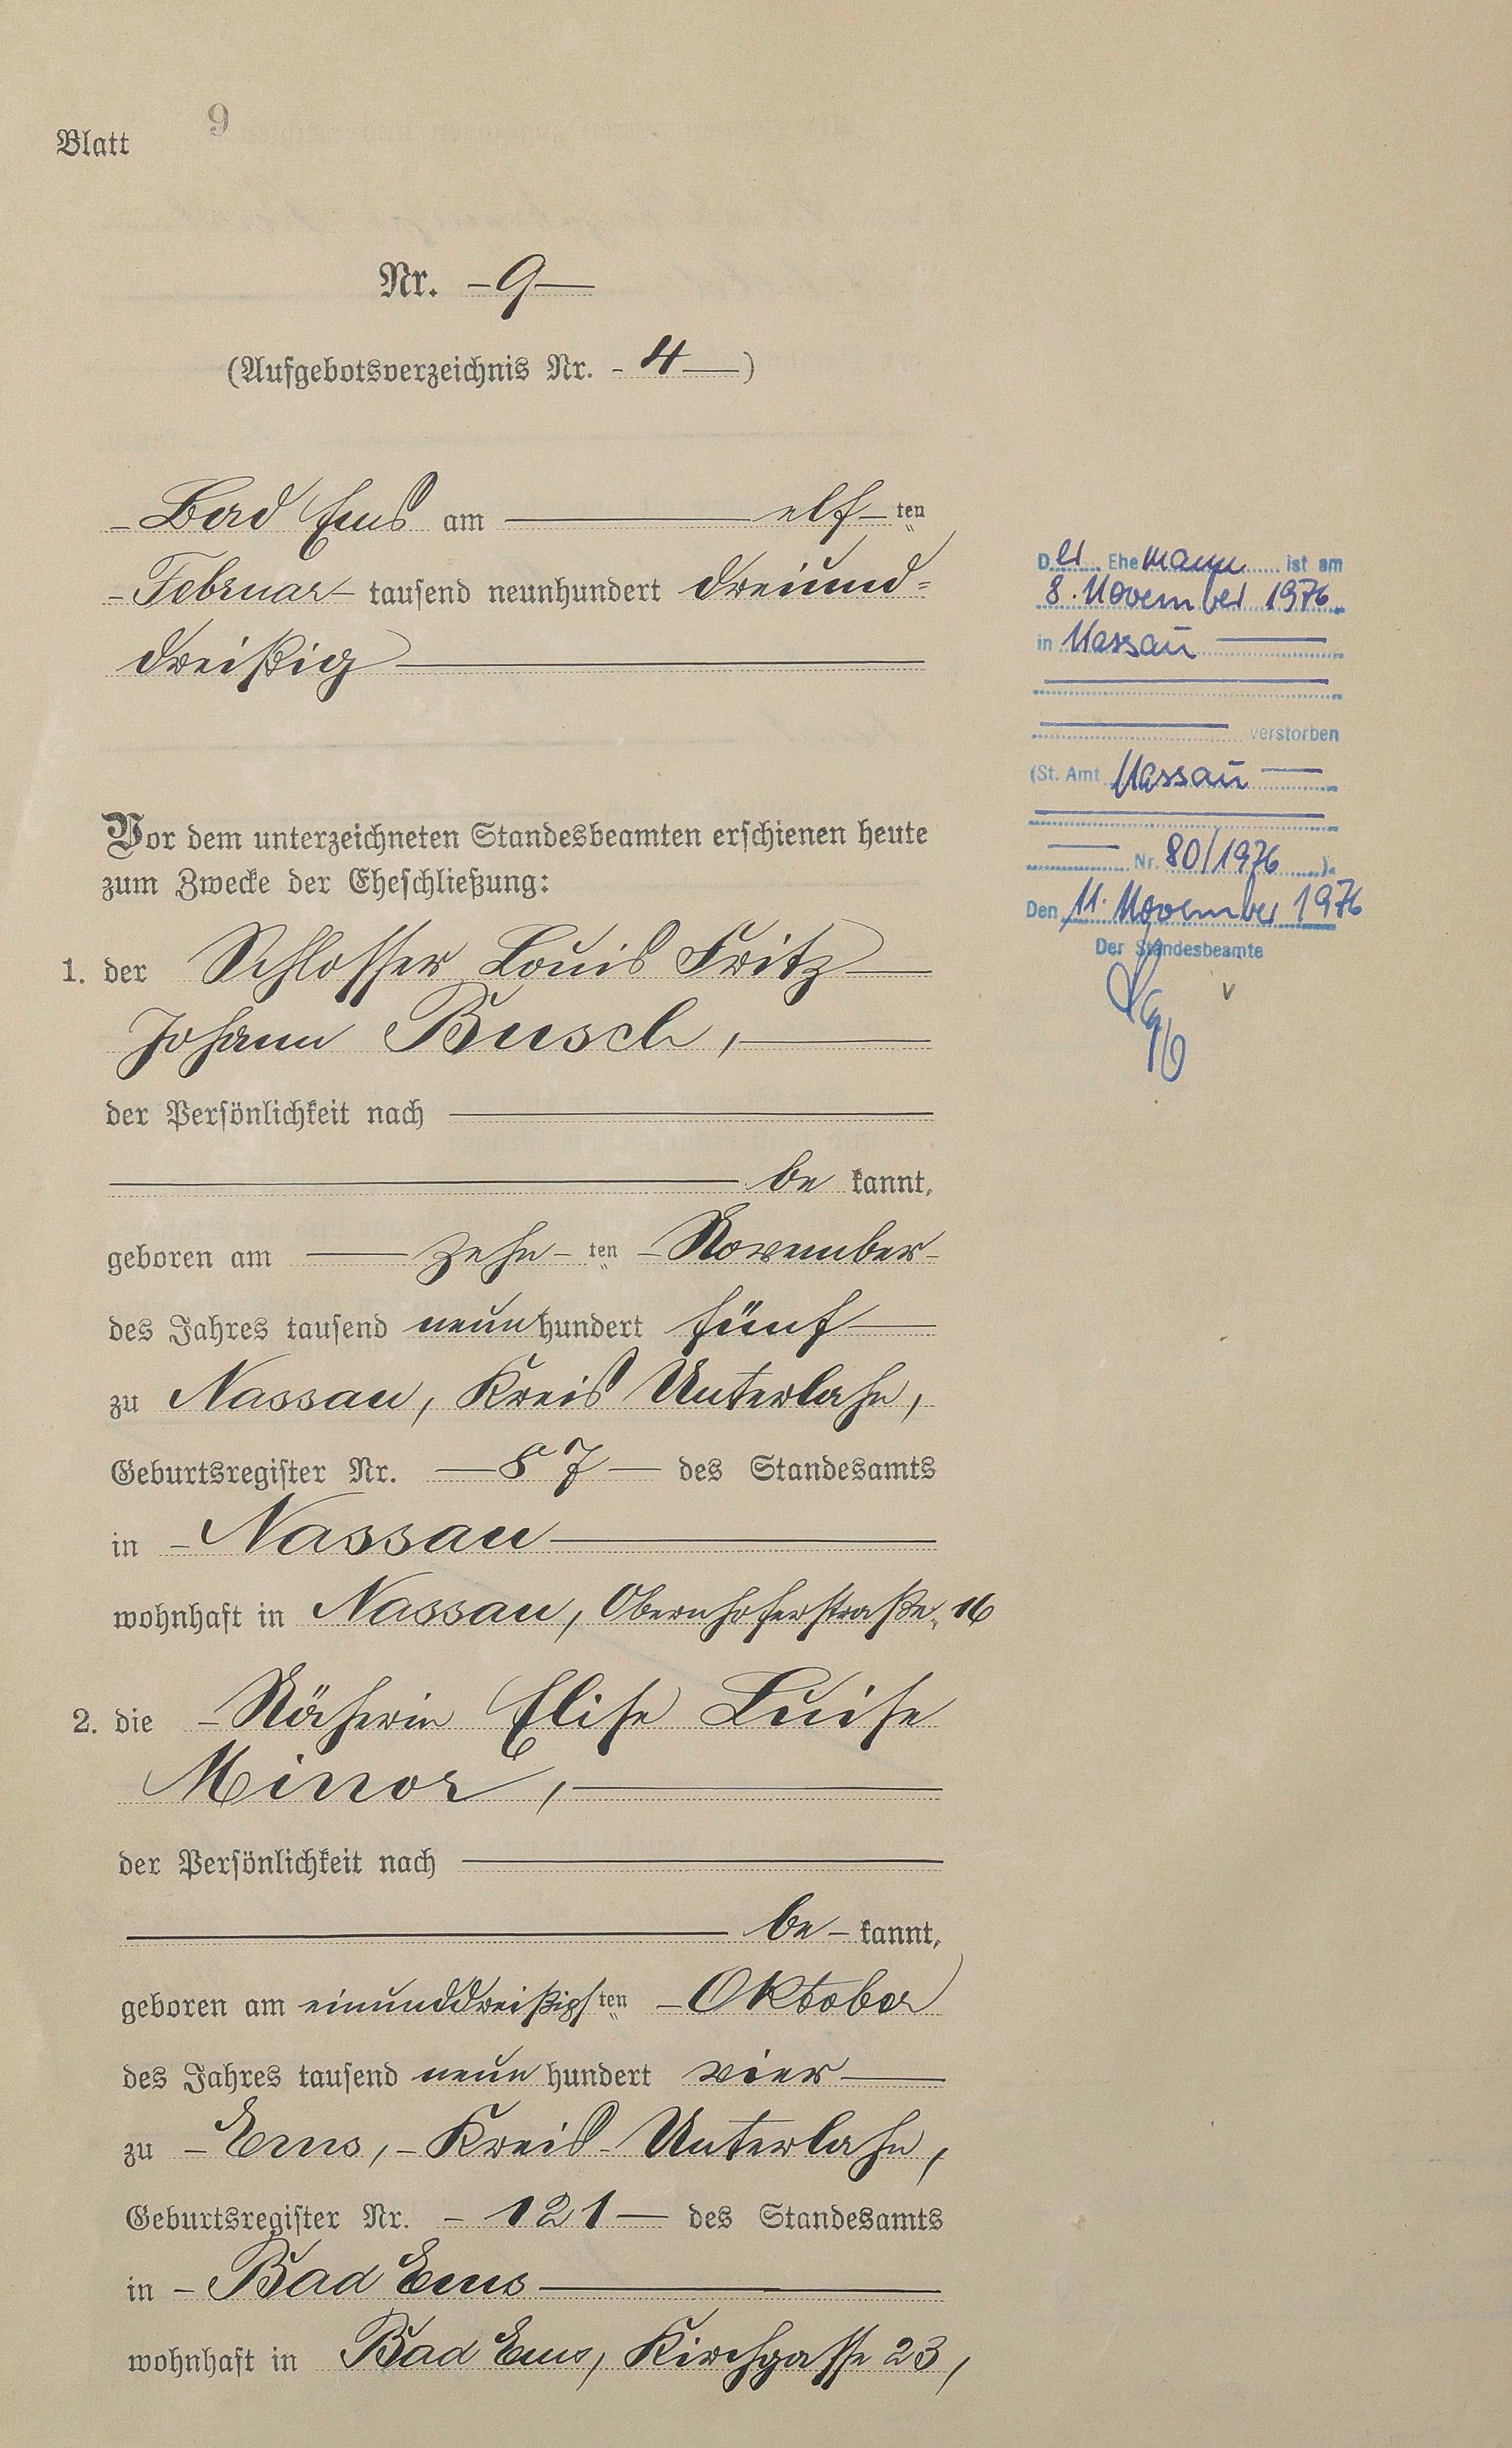 Blatt 9
Nr. – 9 —
(Aufgebotsverzeichnis Nr. - 4 —)
- Bad Ems am — elf - ten
- Februar - tausend neunhundert dreiund=
dreißig —
Vor dem unterzeichneten Standesbeamten erschienen heute
zum Zwecke der Eheschließung:
1. der Schlosser Louis Fritz —
Johann Busch, —
der Persönlichkeit nach —
— be kannt,
geboren am — zehn - ten - November -
des Jahres tausend neun hundert fünf —
zu Nassau, Kreis Unterlahn,
Geburtsregister Nr. — 87 — des Standesamts
in - Nassau —
wohnhaft in Nassau, Obernhoferstraße, 16
2. die - Näherin Elise Luise
Minor, —
der Persönlichkeit nach —
— be - kannt,
geboren am einunddreißigsten - Oktober
des Jahres tausend neun hundert vier —
zu - Ems, - Kreis - Unterlahn,
Geburtsregister Nr. - 121 — des Standesamts
in - Bad Ems —
wohnhaft in Bad Ems, Kirchgasse 23,
Der Ehemann ist am
8. November 1976
in Nassau —
— verstorben
(St. Amt Nassau —
— Nr. 80/1976 ).
Den 11. November 1976
Der Standesbeamte